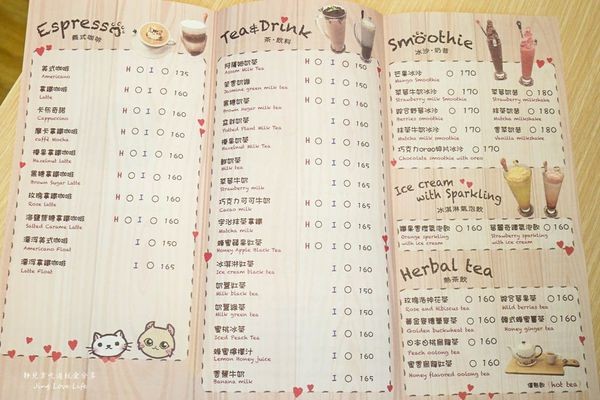 Espresso
義式咖啡
美式咖啡 H ○ I ○ 135
Americano
拿鐵咖啡 H ○ I ○ 150
Latte
卡布奇諾 H ○ I ○ 150
Cappuccino
摩卡拿鐵咖啡 H ○ I ○ 160
Caffè Mocha
榛果拿鐵咖啡 H ○ I ○ 160
Hazelnut Latte
黑糖拿鐵咖啡 H ○ I ○ 160
Brown Sugar Latte
玫瑰拿鐵咖啡 H ○ I ○ 160
Rose Latte
海鹽焦糖拿鐵咖啡 H ○ I ○ 160
Salted Caramel Latte
漂浮美式咖啡 I ○ 150
Americano Float
漂浮拿鐵咖啡 I ○ 160
Latte Float
Tea&Drink
茶·飲料
阿薩姆奶茶
Assam Milk Tea
茉香奶綠
Jasmine green milk tea
黑糖奶茶
Brown Sugar milk tea
盆栽奶茶
Potted Plant Milk Tea
榛果奶茶
Hazelnut Milk Tea
鮮奶茶
Milk tea
草莓牛奶
Strawberry milk
巧克力可可牛奶
Cacao milk
宇治抹茶拿鐵
Matcha milk
蜂蜜蘋果紅茶
Honey Apple Black Tea
冰淇淋紅茶
Ice cream black tea
奶蓋紅茶
Milk black tea
奶蓋綠茶
Milk green tea
蜜桃冰茶
Iced Peach Tea
蜂蜜檸檬汁
Lemon Honey Juice
香蕉牛奶
Banana milk
Smoothie
冰沙·奶昔
芒果冰沙 ○ 170
Mango Smoothie
草莓牛奶冰沙 ○ 170 草莓奶昔 ○ 180
Strawberry Milk Smoothie Strawberry milkshake
綜合莓果冰沙 ○ 170 抹茶奶昔 ○ 180
Berries smoothie Matcha milkshake
抹茶牛奶冰沙 ○ 170 香草奶昔 ○ 180
Matcha Milk smoothie Vanilla milkshake
巧克力oreo碎片冰沙 ○ 170
Chocolate smoothie with oreo
Ice cream
with Sparkling
冰淇淋氣泡飲
柳橙香橙氣泡飲 ○ 160
Orange sparkling
with ice cream
草莓香橙氣泡飲 ○ 160
Strawberry sparkling
with ice cream
Herbal tea
熱茶飲
玫瑰洛神花茶 ○ 160 綜合莓果茶 ○ 160
Rose and hibiscus tea Wild berries tea
黃金蕎麥茶 ○ 160 韓式蜂蜜薑茶 ○ 160
Golden buckwheat tea Honey ginger tea
日本白桃烏龍茶 ○ 160
Peach oolong tea
蜜香烏龍紅茶 ○ 160
Honey flavored oolong tea
僅熱飲 (hot tea)
靜兒步光遊玩愛分享
Jing Love Life